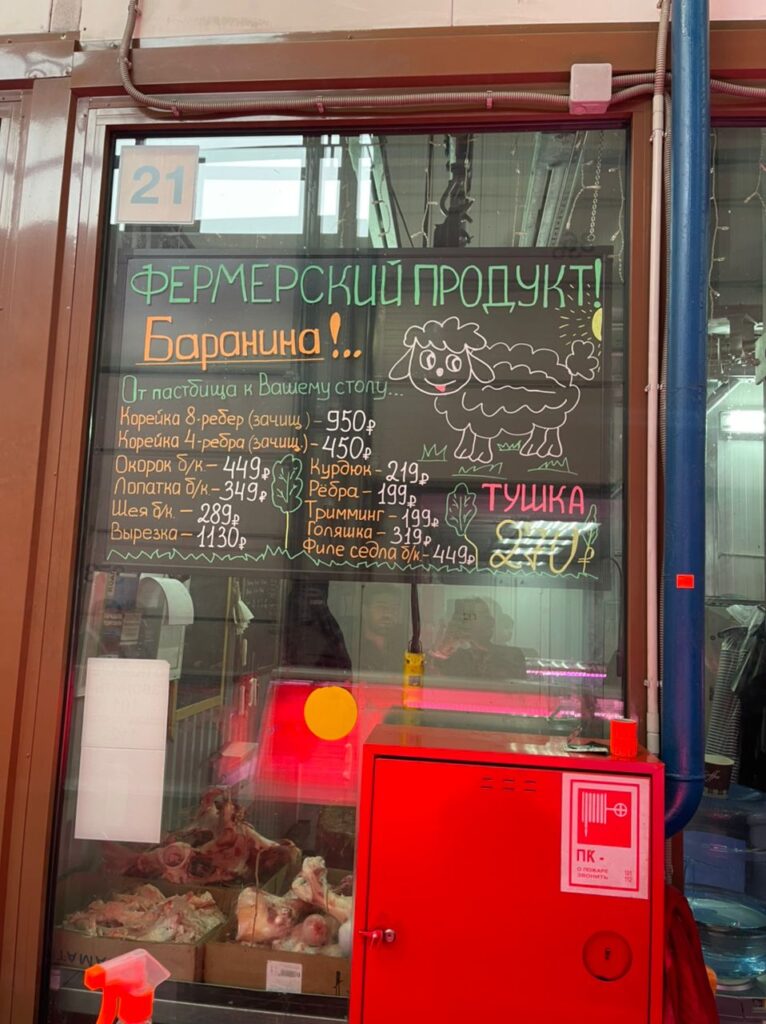 21
ФЕРМЕРСКИЙ ПРОДУКТ!
Баранина!..
От пастбища к Вашему столу...
Корейка 8-ребер (зачищ.) - 950₽
Корейка 4-ребра (зачищ.) - 450₽
Окорок б/к - 449₽
Лопатка б/к - 349₽
Шея б/к. - 289₽
Вырезка - 1130₽
Курдюк - 219₽
Рёбра - 199₽
Тримминг - 199₽
Голяшка - 319₽
Филе седла б/к - 449₽
ТУШКА
270₽
ПК -
О ПОЖАРЕ
ЗВОНИТЬ
101
112